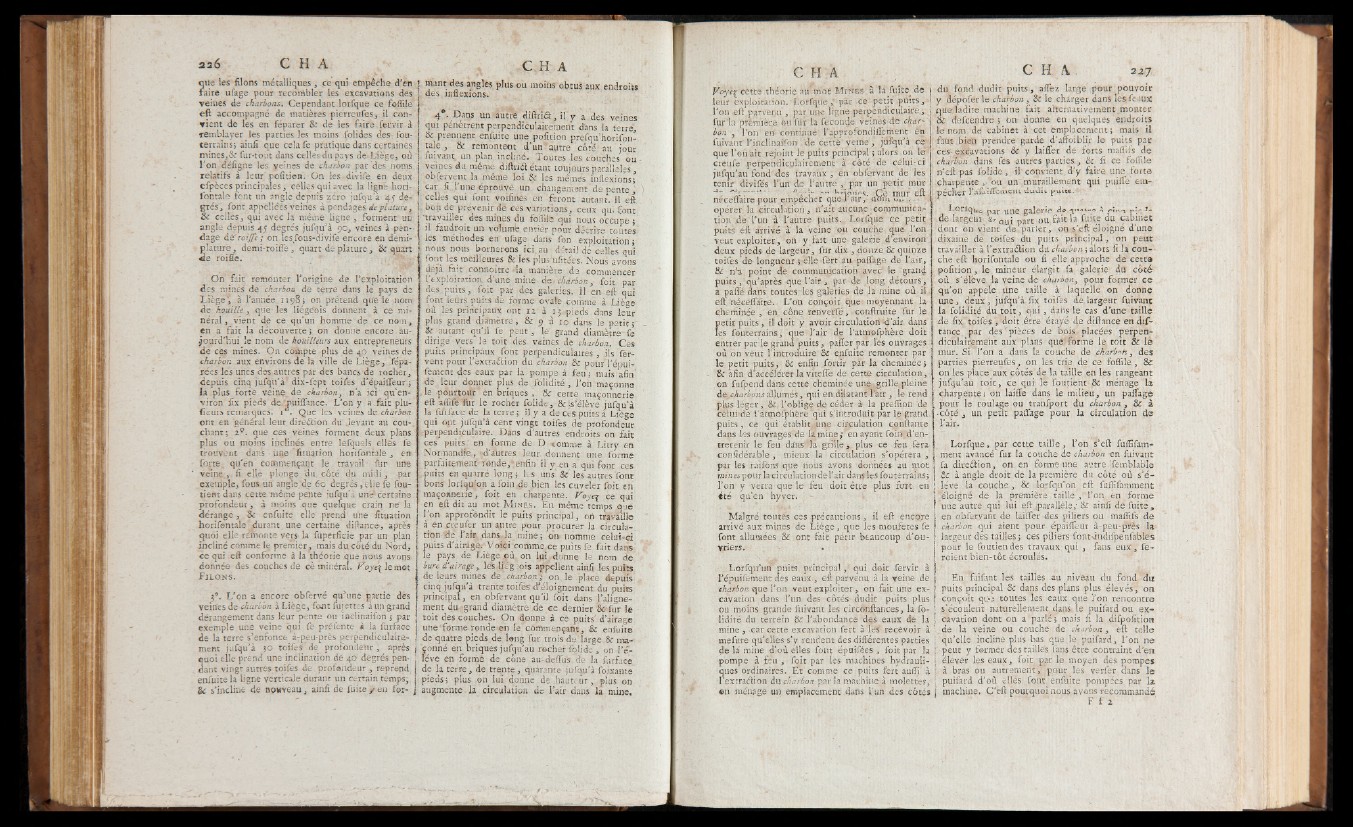 226 C H A
que les filons métalliques, ce qui empêche d'en
faire usage pour recombler les excavations des
veines de charbons. Cependant lorsque ce fossile
est accompagné de matières pierreuses, il con-
vient de les en séparer & de les faire servir à
remblayer les parties les moins solides des sou-
terrains; ainsi que cela se pratique dans certaines
mines, & sur-tout dans celles du pays de Liège, où
l'on désigne les veines de charbon par des noms
relatifs à leur position. On les divise en deux
espèces principales; celles qui avec la ligne hori-
fontale font un angle depuis zéro jusqu'à 45 de-
grés, sont appellées veines à pendages de plature,
& celles, qui avec la même ligne, forment un
angle depuis 45 degrés jusqu'à 90, veines à pen-
dage de roisse; on les sous-divise encore en demi-
plature, demi-roisse, quart de plature, & quart
de roisse.
On fait remonter l'origine de l'exploitation
des mines de charbon de terre dans le pays de
Liège, à l'année 1198; on prétend que le nom
de houille, que les liégeois donnent à ce mi-
néral, vient de ce qu'un homme de ce nom,
en a fait la découverte; on donne encore au-
jourd'hui le nom de houilleurs aux entrepreneurs
de ces mines. On compte plus de 40 veines de
charbon aux environs de la ville de Liège, sépa-
rées les unes des autres par des bancs de rocher,
depuis cinq jusqu'à dix-sept toises d'épaisseur;
la plus forte veine de charbon, n'a ici qu'en-
viron six pieds de puissance. L'on y a fait plu-
sieurs remarques. 1°. Que les veines de charbon
ont en général leur direction du levant au cou-
chant; 2°. que ces veines forment deux plans
plus ou moins inclinés entre lesquels elles se
trouvent dans une situation horisontale, en
sorte qu'en commençant le travail sur une
veine, si elle plonge du côté du midi, par
exemple, sous un angle de 60 degrés, elle se sou-
tient dans cette même pente jusqu'à une certaine
profondeur, à moins que quelque crain ne la
dérange, & ensuite elle prend une situation
horisontale durant une certaine distance, après
quoi elle remonte vers la superficie par un plan
incliné comme le premier, mais du côté du Nord,
ce qui est conforme à la théorie que nous avons
donnée des couches de ce minéral. Voyez le mot
FILONS.
3°. L'on a encore observé qu'une partie des
veines de charbon à Liège, sont sujettes à un grand
dérangement dans leur pente ou inclinaison; par
exemple une veine qui se présente à la surface
de la terre s'enfonce à-peu-près perpendiculaire-
ment jusqu'à 30 toises de profondeur, après
quoi elle prend une inclination de 40 degrés pen-
dant vingt autres toises de profondeur, reprend
ensuite la ligne verticale durant un certain temps,
& s'incline de nouveau, ainsi de suite, en for-
C H A
mant des angles plus ou moins obtus aux endroits
des inflexions.
4°. Dans un autre district, il y a des veines
qui pénètrent perpendiculairement dans la terre,
& prennent ensuite une position presqu'horison-
tale, & remontent d'un autre côté au jour
suivant un plan incliné. Toutes les couches ou
veines du même district étant toujours parallèles,
observent la même loi & les mêmes inflexions;
car si l'une éprouve un changement de pente,
celles qui sont voisines en feront autant. Il est
bon de prévenir de ces variations, ceux qui font
travailler des mines du fossile qui nous occupe;
il faudroit un volume entier pour décrire toutes
les méthodes en usage dans son exploitation;
nous nous bornerons ici au détail de celles qui
sont les meilleures & les plus usitées. Nous avons
déjà fait connoître la manière de commencer
l'exploitation d'une mine de charbon, soit par
des puits, soit par des galeries. Il en est qui
font leurs puits de forme ovale comme à Liège
où les principaux ont 12 à 15 pieds dans leur
plus grand diamètre, & 9 à 10 dans le petit;
& autant qu'il se peut, le grand diamètre se
dirige vers le toit des veines de charbon. Ces
puits principaux sont perpendiculaires, ils ser-
vent pour l'extraction du charbon & pour l'épui-
sement des eaux par la pompe à feu; mais afin
de leur donner plus de solidité, l'on maçonne
le pourtour en briques, & cette maçonnerie
est assise sur le rocher solide, & s'élève jusqu'à
la surface de la terre; il y a de ces puits à Liège
qui ont jusqu'à cent vingt toises de profondeur
perpendiculaire. Dans d'autres endroits on fait
ces puits en forme de D comme à Litry en
Normandie, d'autres leur donnent une forme
parfaitement ronde, enfin il y en a qui font ces
puits en quarré long; les uns & les autres sont
bons lorsqu'on a soin de bien les cuveler soit en
maçonnerie, soit en charpente. Voyez ce qui
en est dit au mot MINES. En même temps que
l'on approfondit le puits principal, on travaille
à en creuser un autre pour procurer la circula-
tion de l'air dans la mine; on nomme celui-ci
puits d'airage. Voici comme ce puits se fait dans
le pays de Liège où on lui donne le nom de
bure d'airage, les liégeois appellent ainsi les puits
de leurs mines de charbon; on le place depuis
cinq jusqu'à trente toises d'éloignement du puits
principal, en observant qu'il soit dans l'aligne-
ment du grand diamètre de ce dernier & sur le
toit des couches. On donne à ce puits d'airage
une forme ronde en le commençant, & ensuite
de quatre pieds de long sur trois de large & ma-
çonné en briques jusqu'au rocher solide, on l'é-
lève en forme de cône au-dessus de la surface
de la terre, de trente, quarante jusqu'à soixante
pieds; plus on lui donne de hauteur, plus on
augmente la circulation de l'air dans la mine.
C H A
Voyez cette théorie au mot MINES à la suite de
leur exploitation. Lorsque, par ce petit puits,
l'on est parvenu, par une ligne perpendiculaire,
sur la première ou sur la seconde veine de char-
bon, l'on en continue l'approfondissement en
suivant l'inclinaison de cette veine, jusqu'à ce
que l'on ait rejoint le puits principal; alors on le
creuse perpendiculairement à côté de celui-ci
jusqu'au fond des travaux, en observant de les
tenir divisés l'un de l'autre, par un petit mur
Ce mur est
nécessaire pour empêcher que l'air,
opérer la circulation, n'ait aucune communica-
tion de l'un à l'autre puits. Lorsque ce petit
puits est arrivé à la veine ou couche que l'on
veut exploiter, on y fait une galerie d'environ
deux pieds de largeur, sur dix, douze & quinze
toises de longueur; elle sert au passage de l'air,
& n'a point de communication avec le grand
puits, qu'après que l'air, par de long détours,
a passé dans toutes les galeries de la mine où il
est nécessaire. L'on conçoit que moyennant la
cheminée, en cône renversé, construite sur le
petit puits, il doit y avoir circulation d'air dans
les souterrains, que l'air de l'atmosphère doit
entrer par le grand puits, passer par les ouvrages
où on veut l'introduire & ensuite remonter par
le petit puits, & enfin sortir par la cheminée;
& afin d'accélérer la vîtesse de cette circulation,
on suspend dans cette cheminée une grille pleine
de charbons allumés, qui en dilatant l'air, le rend
plus léger, & l'oblige de céder à la pression de
celui de l'atmosphère qui s'introduit par le grand
puits, ce qui établit une circulation constante
dans les ouvrages de la mine; en ayant soin d'en-
tretenir le feu dans la grille, plus ce feu sera
considérable, mieux la circulation s'opérera,
par les raisons que nous avons données au mot
mines pour la circulation de l'air dans les souterrains;
l'on y verra que le feu doit être plus fort en
été qu'en hyver.
Malgré toutes ces précautions, il est encore
arrivé aux mines de Liège, que les moufettes se
sont allumées & ont fait périr beaucoup d'ou-
vriers.
Lorsqu'un puits principal, qui doit servir à
l'épuisement des eaux, est parvenu à la veine de
charbon que l'on veut exploiter, on fait une ex-
cavation dans l'un des côtés dudit puits plus
ou moins grande suivant les circonstances, la so-
lidité du terrein & l'abondance des eaux de la
mine, car cette excavation sert à les recevoir à
mesure qu'elles s'y rendent des différentes parties
de la mine d'où elles sont épuisées, soit par la
pompe à feu, soit par les machines hydrauli-
ques ordinaires. Et comme ce puits sert aussi à
l'extraction du charbon par la machine à moletter,
on ménage un emplacement dans l'un des côtés
C H A 227
du fond dudit puits, assez large pour pouvoir
y déposer le charbon, & le charger dans les sceaux
que ladite machine fait alternativement monter
& descendre; on donne en quelques endroits
le nom de cabinet à cet emplacement; mais il
faut bien prendre garde d'affoiblir le puits par
ces excavations & y laisser de forts massifs de
charbon dans ses autres parties, & si ce fossile
n'est pas solide, il convient d'y faire une forte
charpente, ou un murraillement qui puisse em-
pêcher l'affaissement dudit puits.
Lorsque par une galerie de
de largeur & qui part ou fait la suite du cabinet
dont on vient de parler, on s'est éloigné d'une
dixaine de toises du puits principal, on peut
travailler à l'extraction du charbon; alors si la cou-
che est horisontale ou si elle approche de cette
position, le mineur élargit sa galerie du côté
où s'élève la veine de charbon, pour former ce
qu'on appele une taille à laquelle on donne
une, deux, jusqu'à six toises de largeur suivant
la solidité du toit, qui, dans le cas d'une taille
de six toises, doit être étayé de distance en dis-
tance par des pièces de bois placées perpen-
diculairement aux plans que forme le toit & le
mur. Si l'on a dans la couche de charbon, des
parties pierreuses, on les trie de ce fossile, &
on les place aux côtés de la taille en les rangeant
jusqu'au toit, ce qui le soutient & ménage la
charpente; on laisse dans le milieu, un passage
pour le roulage ou transport du charbon, & à
côté, un petit passage pour la circulation de
l'air.
Lorsque, par cette taille, l'on s'est suffisam-
ment avancé sur la couche de charbon en suivant
sa direction, on en forme une autre semblable
& à angle droit de la première du côté où s'é-
lève la couche, & lorsqu'on est suffisamment
éloigné de la première taille, l'on en forme
une autre qui lui est parallèle, & ainsi de suite,
en observant de laisser des piliers ou massifs de
charbon qui aient pour épaisseur à-peu-près la
largeur des tailles; ces piliers sont indispensables
pour le soutien des travaux qui, sans eux, se-
roient bien-tôt écroulés.
En faisant les tailles au niveau du fond du
puits principal & dans des plans plus élevés, on
conçoit que toutes les eaux que l'on rencontre
s'écoulent naturellement dans le puisard ou ex-
cavation dont on a parlé; mais si la disposition
de la veine ou couche de charbon, est telle
qu'elle incline plus bas que le puisard, l'on ne
peut y former des tailles sans être contraint d'en
élever les eaux, soit par le moyen des pompes
à bras ou autrement, pour les verser dans le
puisard d'où elles sont ensuite pompées par la
machine. C'est pourquoi nous avons recommandé
F f 2